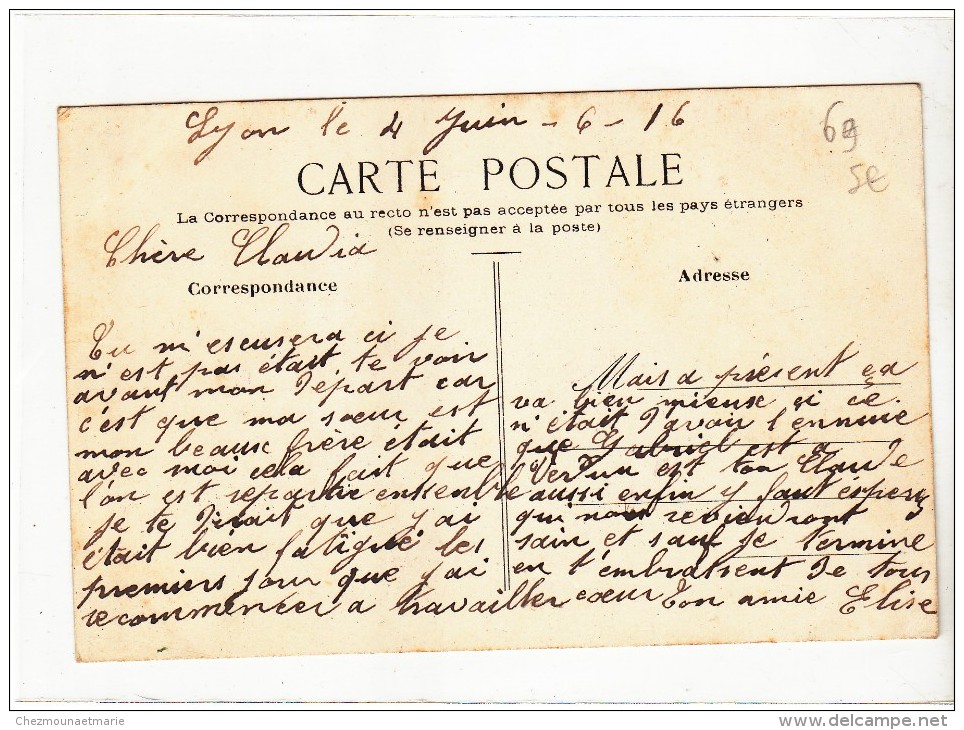 Lyon le 4 Juin - 6 - 16
69
5€
CARTE POSTALE
La Correspondance au recto n'est pas acceptée par tous les pays étrangers
(Se renseigner à la poste)
Chère Claudia
Correspondance
Tu m'escusera ci je
n'est pas était te voir
avant mon départ car
c'est que ma sœur est
mon beaux frère était
avec moi cela fait que
l'on est repartie ensemble
je te dirait que j'ai
était bien fatigué les
premiers jour que j'ai
recommencer a travailler
Adresse
Mais a présent ça
va bien mieux ci ce
n'était d'avoir l'ennuie
que Gabriel est a
Verdun est ton Claude
aussi enfin y faut espery
qui nous reviendront
sain et sauf je termine
en t'embrassent de tous
cœur Ton amie Elise
Chezmounaetmarie
www.delcampe.net